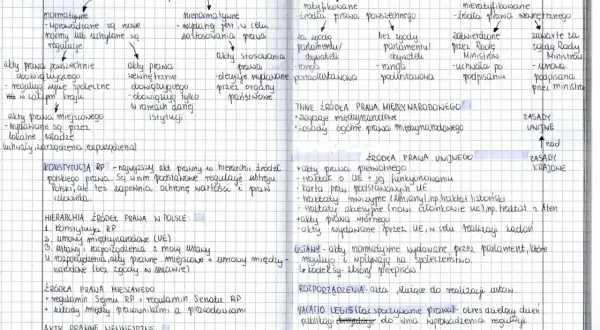 normatywne
- wprowadzane są nowe
normy lub uchylane są
regulacje
nienormatywne
- wydawany jest w celu
zastosowania prawa
akty prawa powszechnie
obowiązującego
- regulują życie społeczne
na całym kraju
akty prawa
wewnętrznie
obowiązującego
- obowiązują tylko
w ramach danej
istytucji
akty stosowania
prawa
- decyzje wydawane
przez organy
państwowe
akty prawa miejscowego
- wydawane są przez
lokalne władze
uchwały, zarządzenia, rozporządzenia
KONSTYTUCJA RP - najwyższy akt prawny w hierarchii źródeł
polskiego prawa. Są w nim podstawowe regulacje ustroju
Polski, ale też zapewnia ochronę wartości i praw
człowieka.
HIERARHIA ŹRÓDEŁ PRAWA W POLSCE:
1. konstytucja RP
2. umowy międzynarodowe (UE)
3. ustawy i rozporządzenia z mocą ustawy
4. rozporządzenia, akty prawne miejscowe i umowy między-
narodowe (bez zgody w ustawie)
ŹRÓDŁA PRAWA MIESZANEGO
• regulamin Sejmu RP i regulamin Senatu RP
• układy między pracownikami a pracodawcami
ratyfikowane
- źródła prawa powszechnego
nieratyfikowane
- źródła prawa wewnętrznego
za zgodą
parlamentu/
obywateli
- ranga
ponadustawowa
bez zgody
parlamentu/
obywateli
- ranga
podustawowa
zatwierdzone
przez Radę
Ministrów
- uchwała po
podpisaniu
zawarte za
zgodą Rady
Ministrów
- umowa
podpisana
przez ministra
INNE ŹRÓDŁA PRAWA MIĘDZYNARODOWEGO
• zwyczaje międzynarodowe
• zasady ogólne prawa międzynarodowego
ZASADY
UNIJNE
nad
ZASADY
KRAJOWE
ŹRÓDŁA PRAWA UNIJNEGO
• akty prawa pierwotnego
- traktat o UE i jej funkcjonowaniu
- karta praw podstawowych UE
- traktaty rewizyjne (zmiany), np. traktat lizboński
- traktaty akcesyjne (nowi członkowie UE), np. traktat z Aten
• akty prawa wtórnego
- akty wydawane przez UE, w celu realizacji zadań
USTAWY - akty normatywne wydawane przez parlament, które
regulują i wpływają na społeczeństwo.
kodeksy - zbiory przepisów
ROZPORZĄDZENIA - akta służące do realizacji ustaw.
VACATIO LEGIS (tzw. spoczywanie prawa) - okres dzielący dzień
publikacji do dnia wprowadzenia regulacji